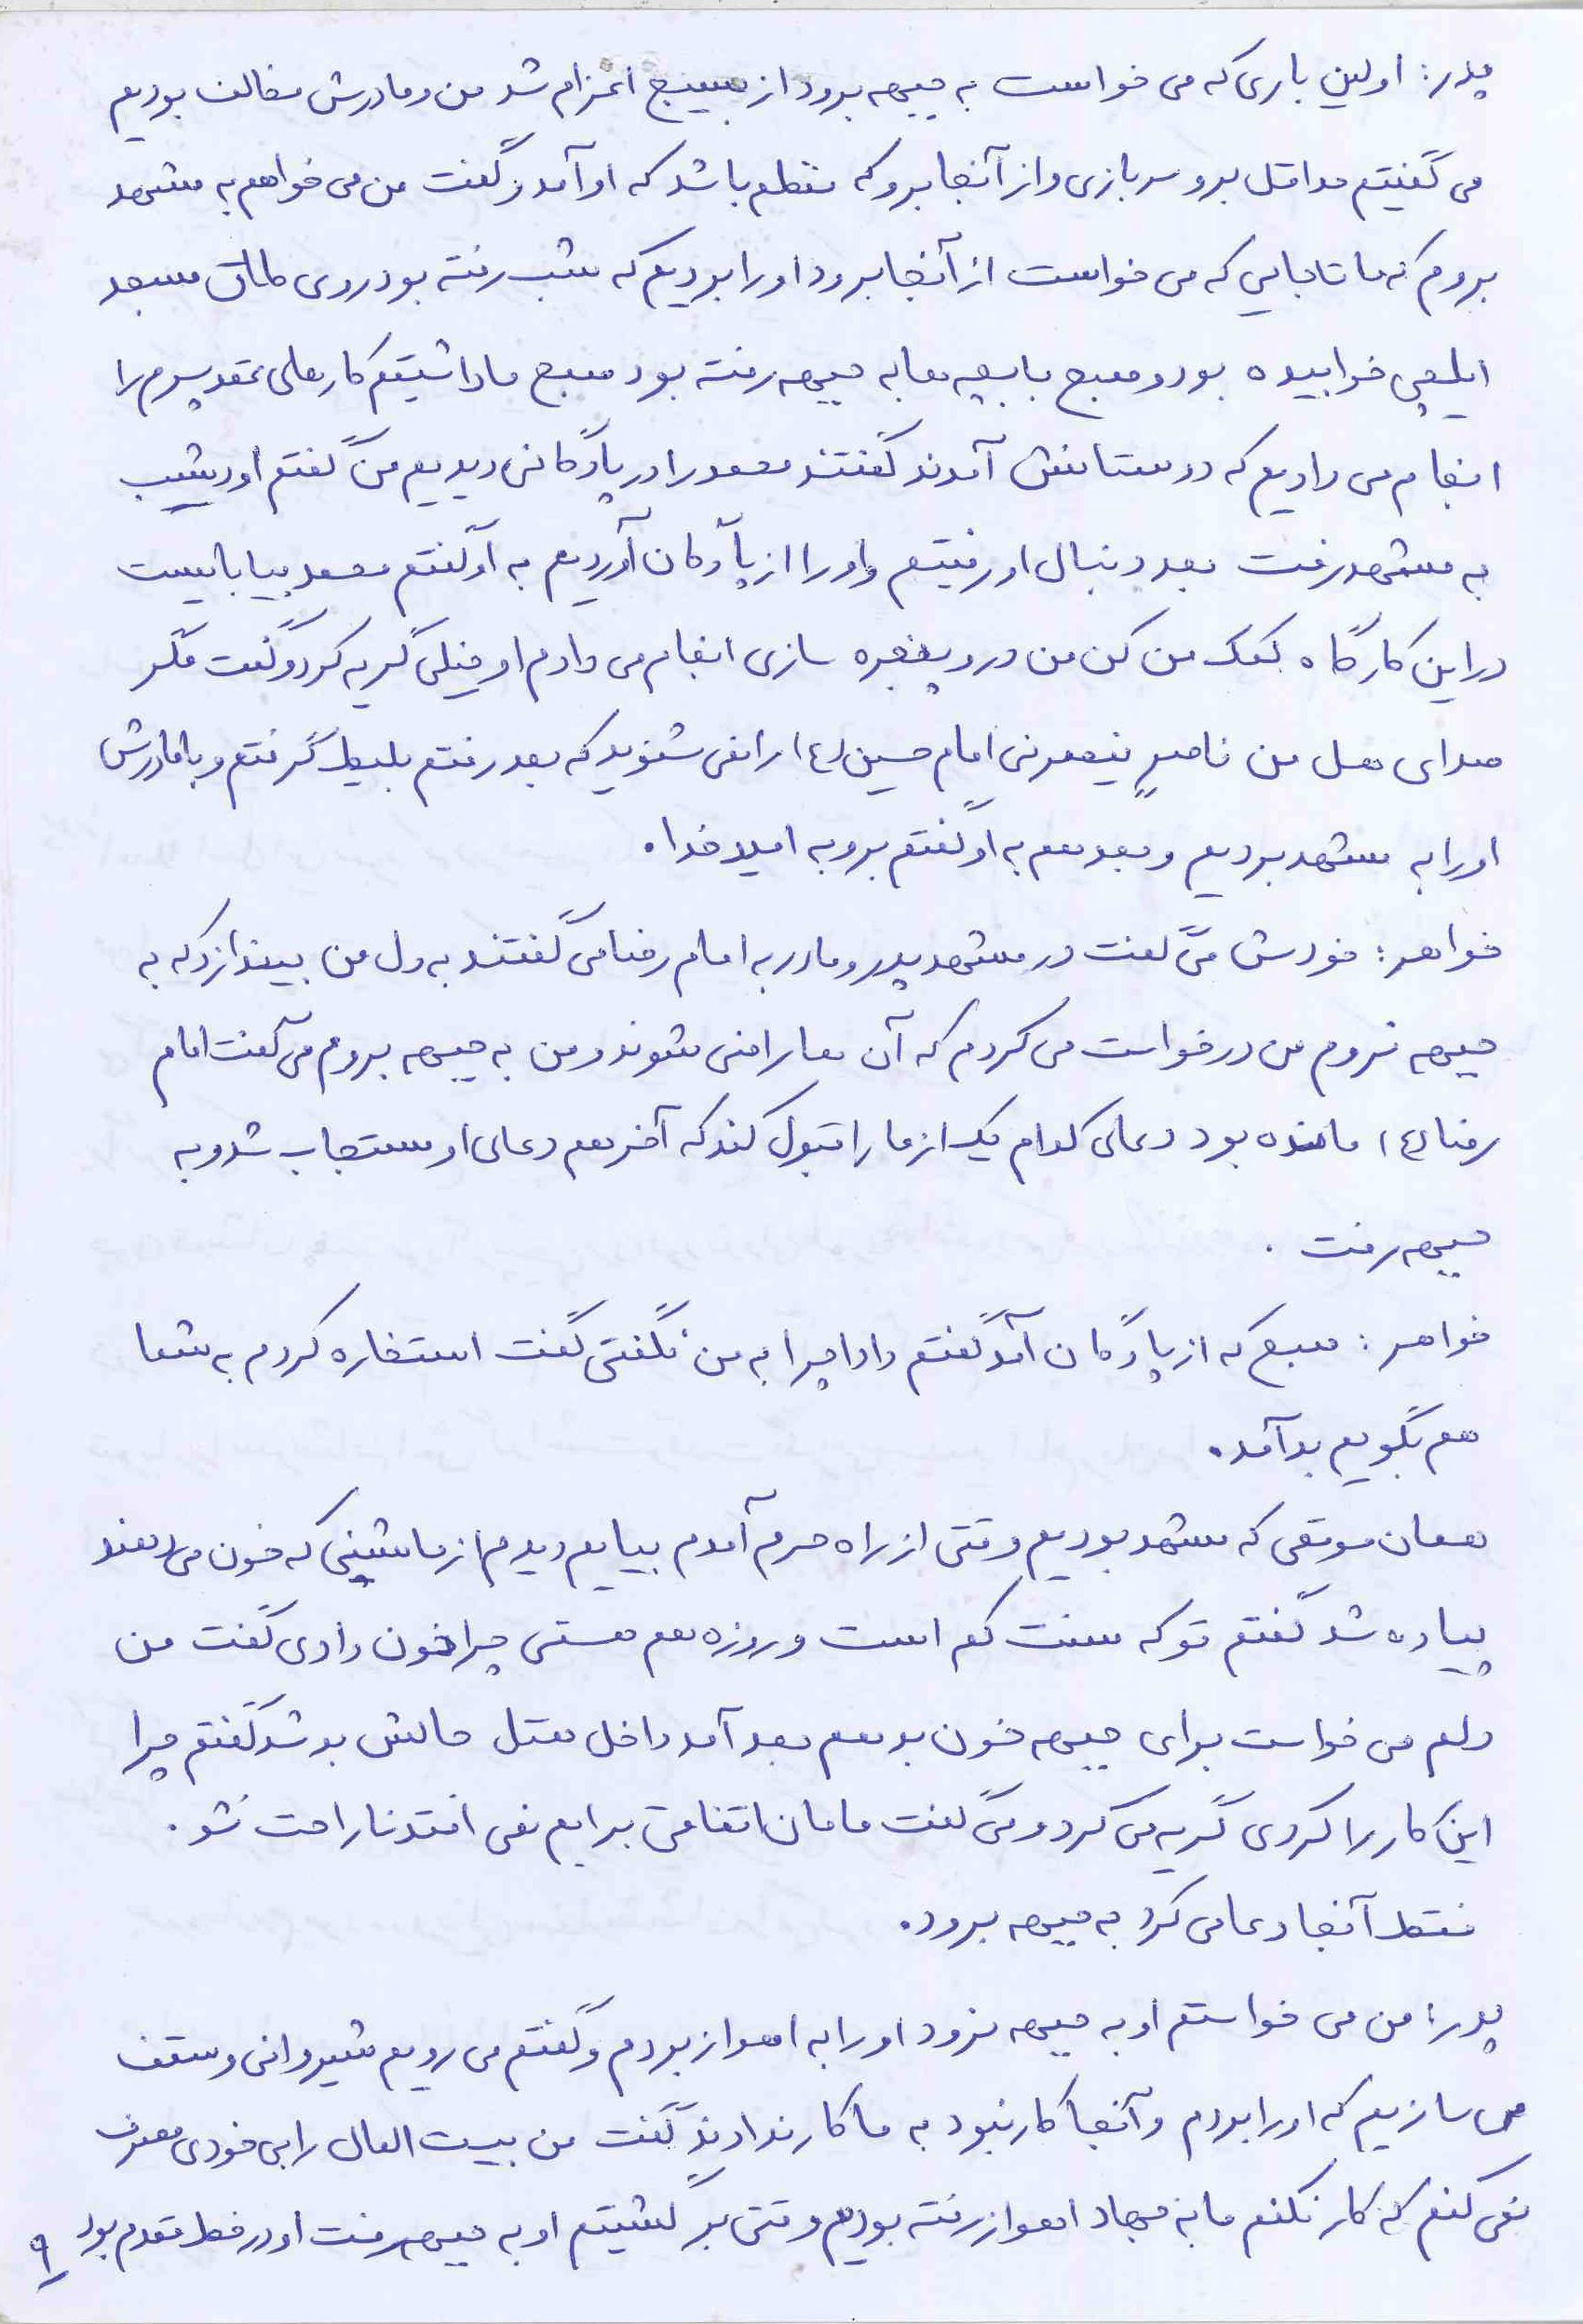 پدر: اولین باری که می خواست به جبهه برود از بسیج اعزام شد من و مادرش مخالف بودیم
می گفتیم حداقل برو سربازی و از آنجا برو که منظم باشد که او آمد و گفت من می خواهم به مشهد
بروم که ما تا جایی که می خواست از آنجا برود او را بردیم که شب رفته بود روی طاق مسجد
ایلچی خوابیده بود و صبح با بچه ها به جبهه رفته بود صبح ما داشتیم کارهای عقد پسرم را
انجام می دادیم که دوستانش آمدند گفتند محمد را در پادگانی دیدیم من گفتم او دیشب
به مشهد رفت بعد دنبال او رفتیم و او را از پادگان آوردیم به او گفتم محمد بیا بایست
در این کارگاه کمک من کن من در و پنجره سازی انجام می دادم او خیلی گریه کرد و گفت مگر
صدای هل من ناصرٍ ینصرنی امام حسین (ع) را نمی شنوید که بعد رفتم بلیط گرفتم و با مادرش
او را به مشهد بردیم و بعد هم به او گفتم برو به امید خدا.
خواهر: خودش می گفت در مشهد پدر و مادر به امام رضا می گفتند به دل من بیندازد که به
جبهه نروم من درخواست می کردم که آن ها راضی شوند و من به جبهه بروم می گفت امام
رضا (ع) مانده بود دعای کدام یک از ما را قبول کند که آخر هم دعای او مستجاب شد و به
جبهه رفت .
خواهر: صبح که از پادگان آمد گفتم دادا چرا به من نگفتی گفت استخاره کردم به شما
هم بگویم بد آمد.
همان موقعی که مشهد بودیم وقتی از راه حرم آمدم بیایم دیدم از ماشینی که خون می دهند
پیاده شد گفتم تو که سنت کم است و روزه هم هستی چرا خون دادی گفت من
دلم می خواست برای جبهه خون بدهم بعد آمد داخل هتل حالش بد شد گفتم چرا
این کار را کردی گریه می کرد و می گفت مامان اتفاقی برایم نمی افتد ناراحت نشو.
فقط آنجا دعا می کرد به جبهه برود.
پدر: من می خواستم او به جبهه نرود او را به اهواز بردم و گفتم می رویم شیروانی و سقف
می سازیم که او را بردم و آنجا کار نبود به ما کار ندادند گفت من بیت المال را بی خودی مصرف
نمی کنم که کار نکنم ما به جهاد اهواز رفته بودیم وقتی برگشتیم او به جبهه رفت او در خط مقدم بود
۹